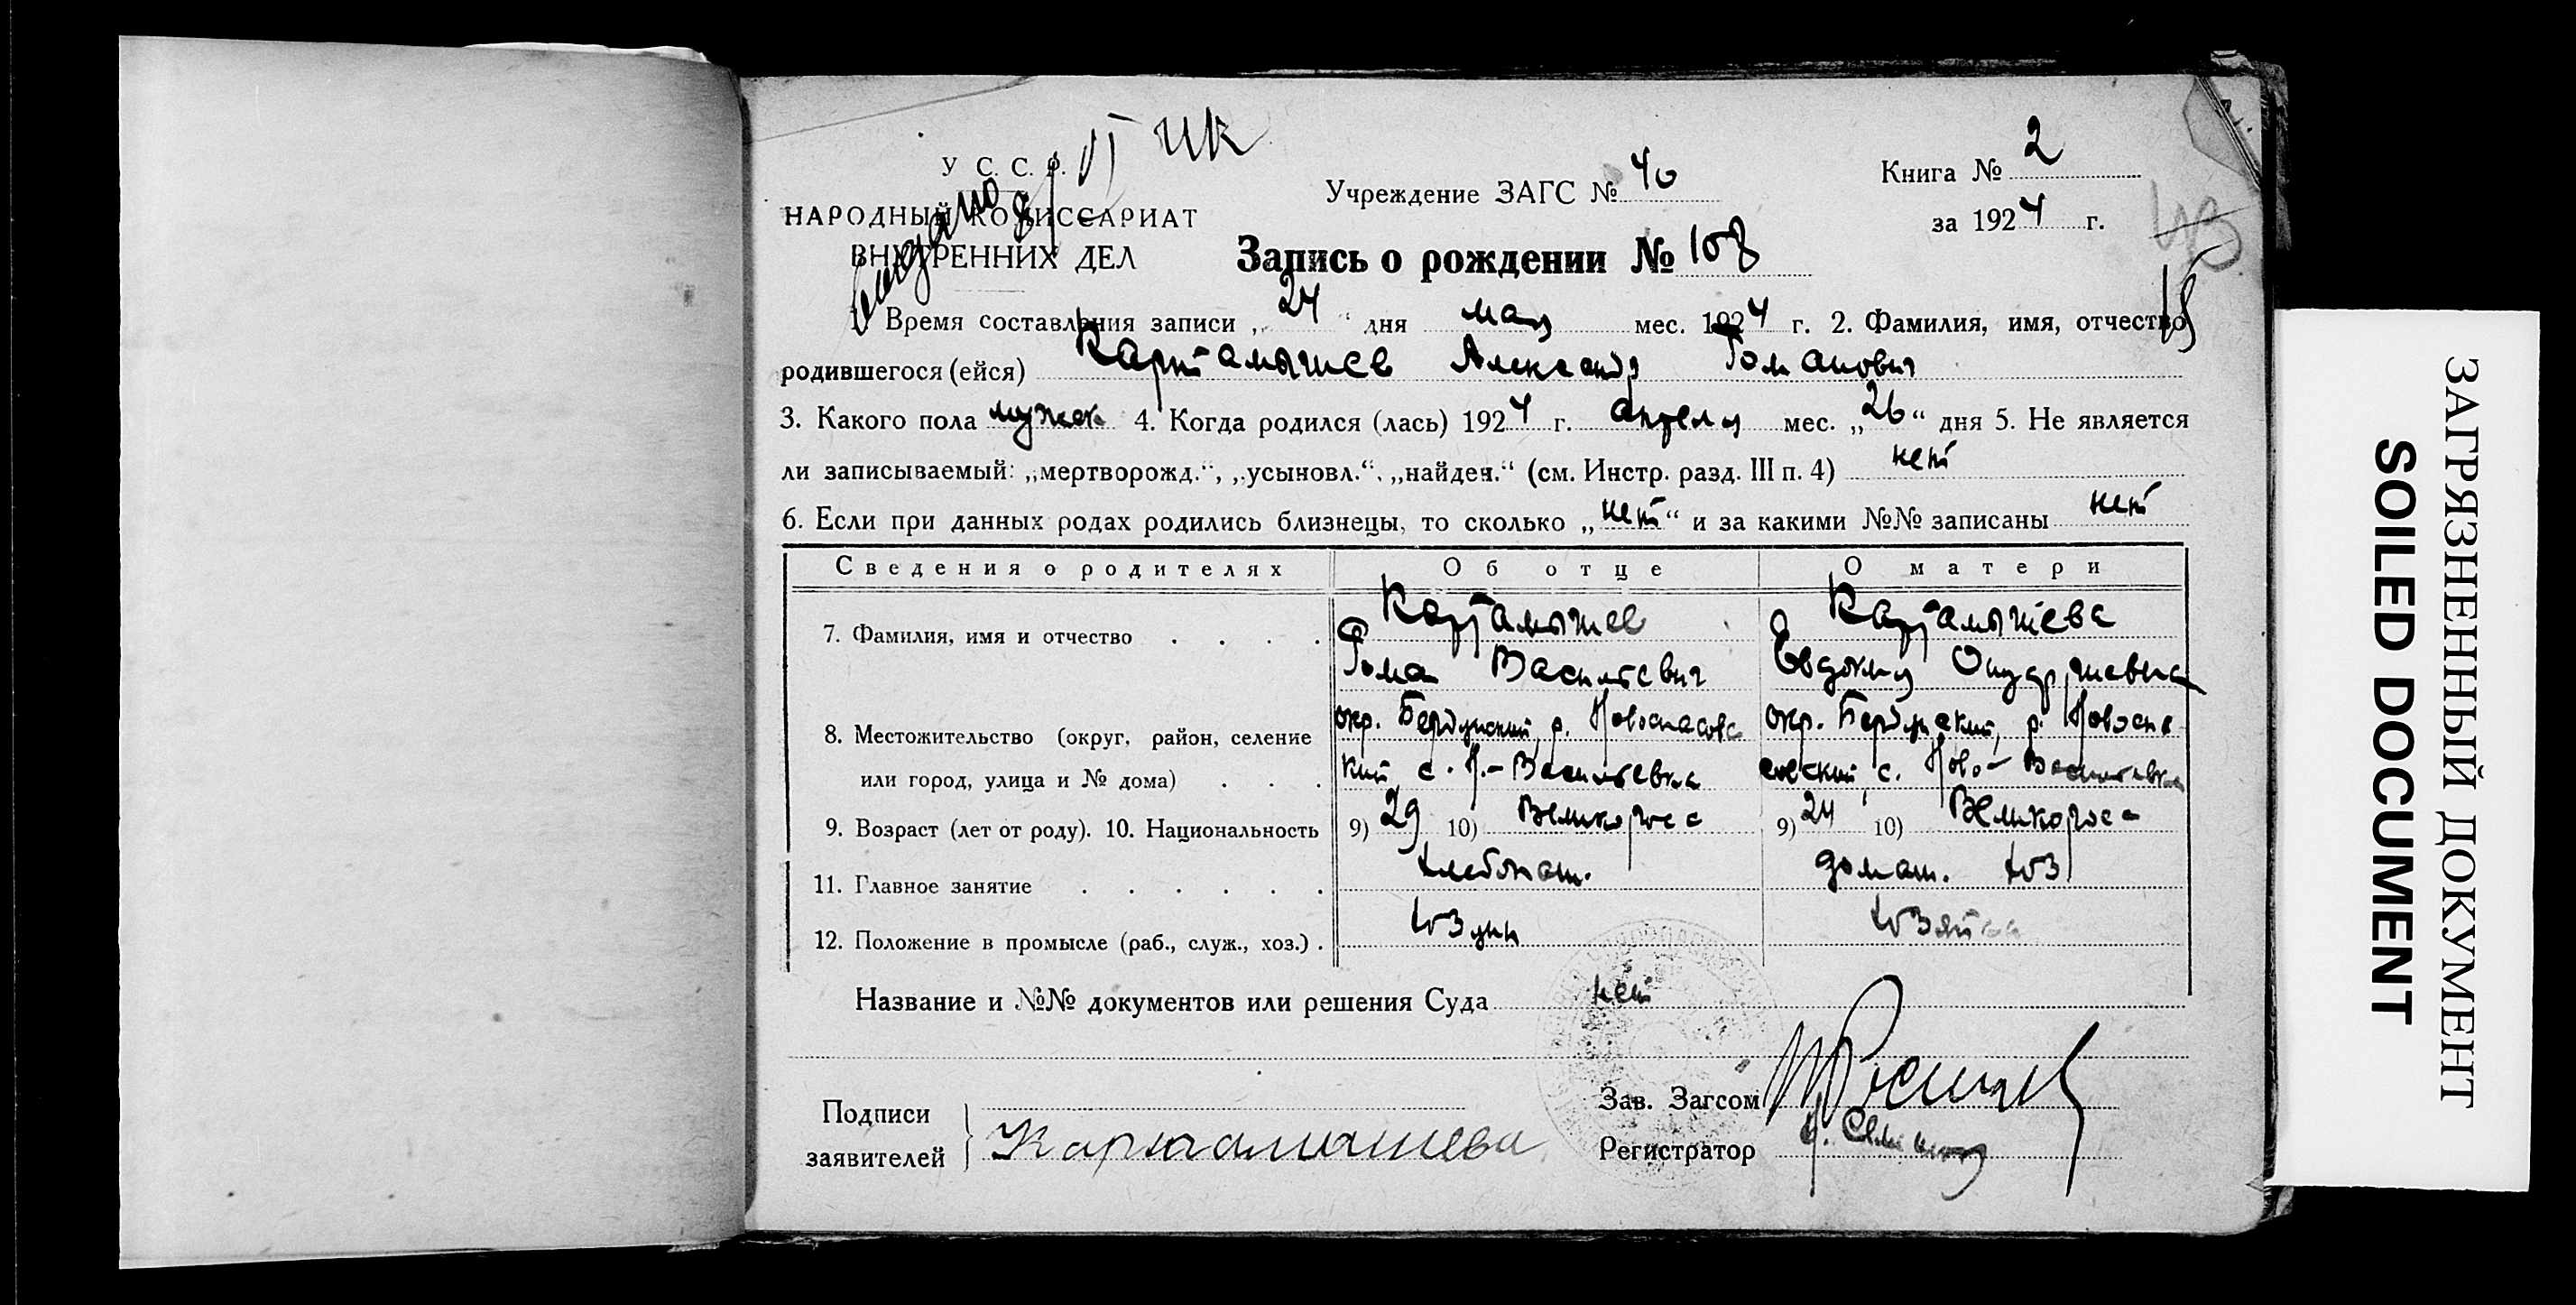 У. С. С. Р.
НАРОДНЫЙ КОМИССАРИАТ
ВНУТРЕННИХ ДЕЛ
Учреждение ЗАГС № 40
Книга № 2
за 1924 г.
Запись о рождении № 108
1. Время составления записи „24“ дня мая мес. 1924 г. 2. Фамилия, имя, отчество
родившегося (ейся) Картамышев Александр Романович
3. Какого пола мужск 4. Когда родился (лась) 1924 г. апреля мес. „26“ дня 5. Не является
ли записываемый: „мертворожд.“, „усыновл.“, „найден.“ (см. Инстр. разд. III п. 4) нет
6. Если при данных родах родились близнецы, то сколько „нет“ и за какими №№ записаны нет
Сведения о родителях Об отце О матери
Картамышев Картамышева
7. Фамилия, имя и отчество . . . .
Рома Васильевич Евдокия
окр. Бердянский, р. Новоспасовс окр. Бердянский, р. Новоспа-
8. Местожительство (округ, район, селение
кий с. Н.-Васильевка совский с. Ново-Васильевка
или город, улица и № дома) . . .
9. Возраст (лет от роду). 10. Национальность 9) 29 10) Великоросс 9) 24 10) Великоросс
11. Главное занятие . . . . . . хлебопаш. домаш. хоз
12. Положение в промысле (раб., служ., хоз.) . хозяин хозяйка
Название и №№ документов или решения Суда нет
Подписи
заявителей Картамышева
Зав. Загсом
Регистратор
ЗАГРЯЗНЕННЫЙ ДОКУМЕНТ
SOILED DOCUMENT